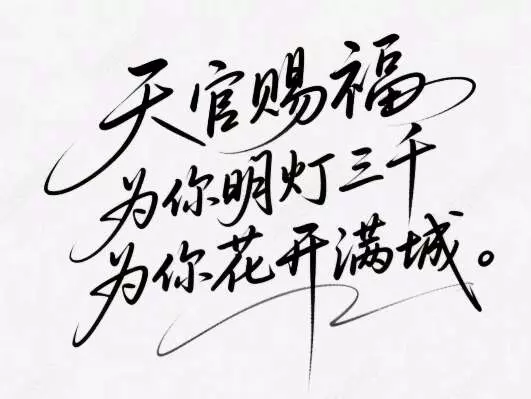 天官赐福
为你明灯三千
为你花开满城。